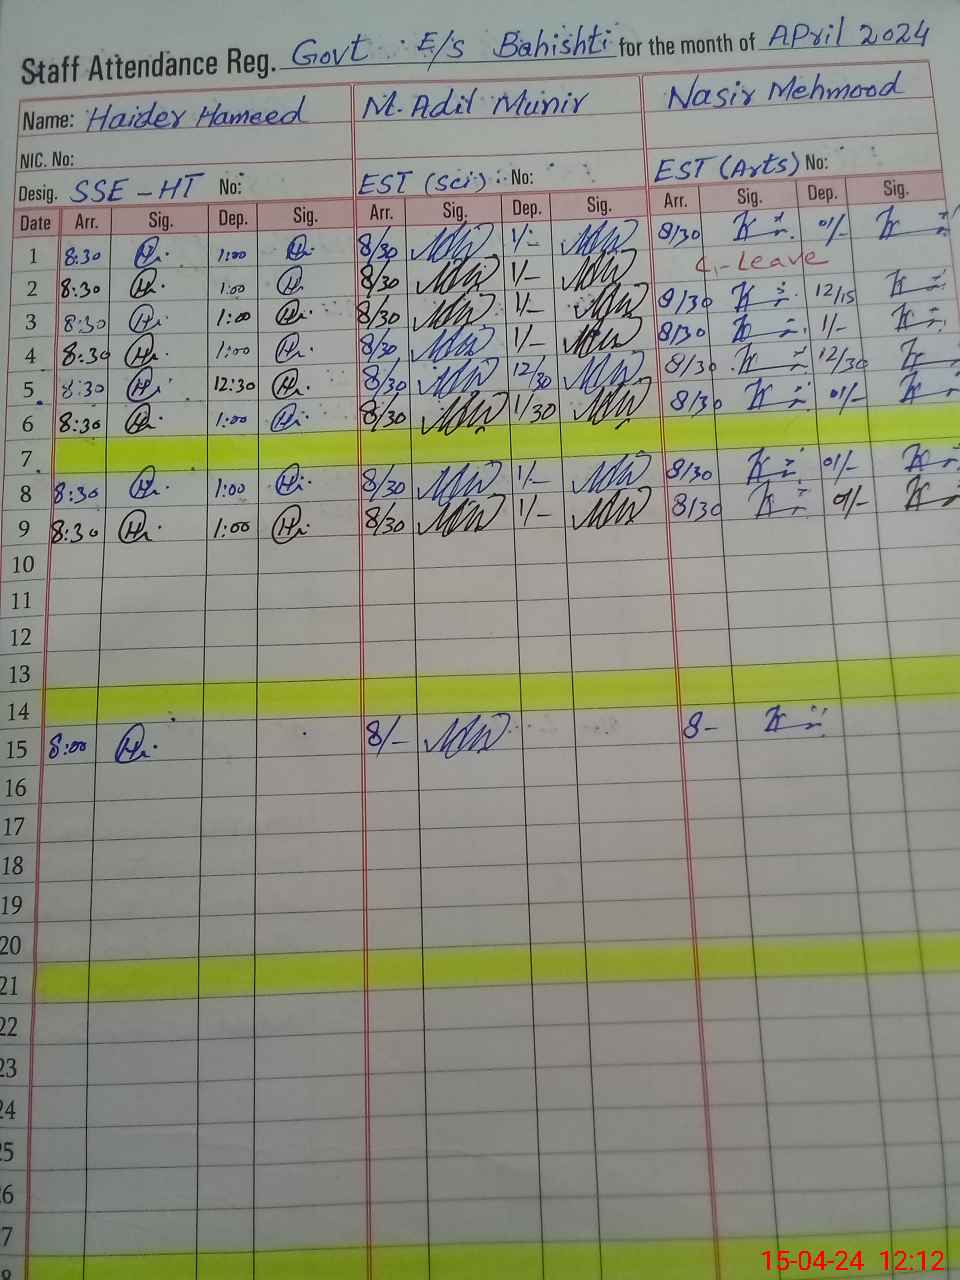 Staff Attendance Reg. Govt E/s Bahishti for the month of APril 2024
Name: Haider Hameed M. Adil Munir Nasir Mehmood
NIC. No:
Desig. SSE - HT No: EST (Sci) No: EST (Arts) No:
Date Arr. Sig. Dep. Sig. Arr. Sig. Dep. Sig. Arr. Sig. Dep. Sig.
1 8:30 1:00 8/30 1/- 8/30 01/-
2 8:30 1:00 8/30 1/- C,-Leave
3 8:30 1:00 8/30 1/- 8/30 12/15
4 8:30 1:00 8/30 1/- 8/30 1/-
5 8:30 12:30 8/30 12/30 8/30 12/30
6 8:30 1:00 8/30 1/30 8/30 01/-
7
8 8:30 1:00 8/30 1/- 8/30 01/-
9 8:30 1:00 8/30 1/- 8/30 01/-
10
11
12
13
14
15 8:00 8/- 8-
16
17
18
19
20
21
22
23
24
25
26
27
15-04-24 12:12